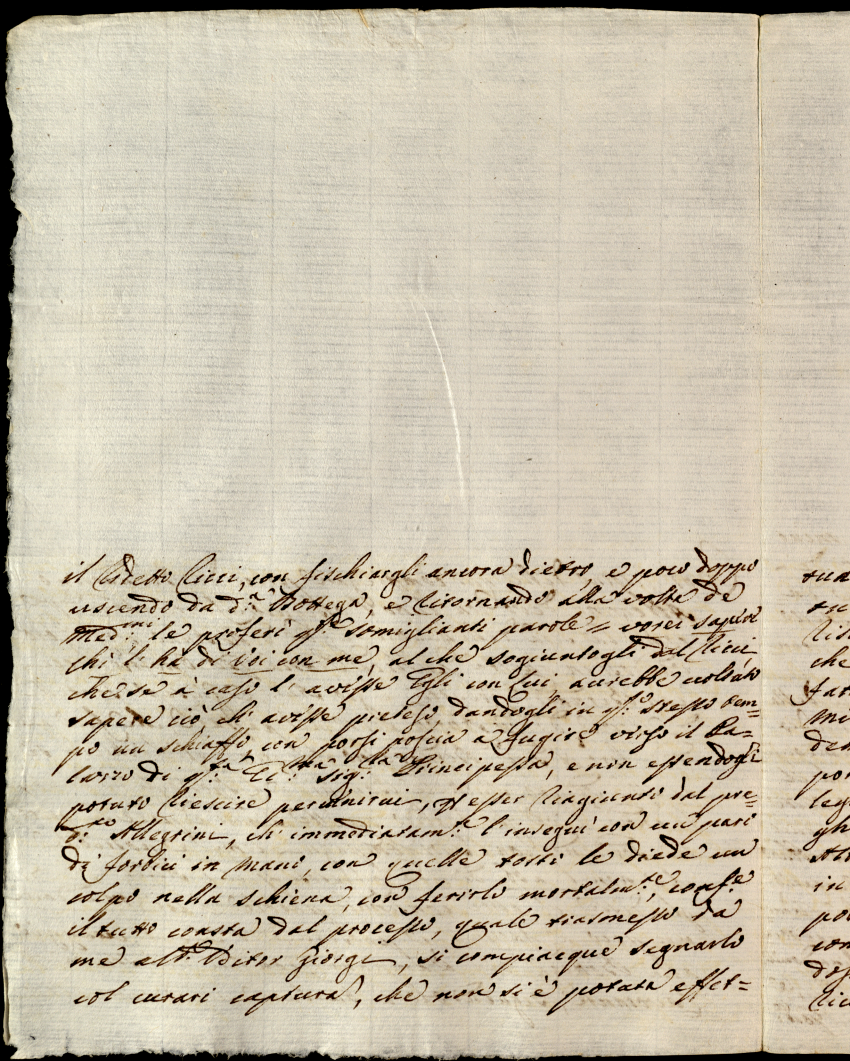 il sudetto Ricci, con fischiargli ancora dietro, e poco doppo
uscendo da d.ᵃ Bottega, e ritornando alla volta de
med.ᵐⁱ le proferì q.ᵗᵉ somiglianti parole = vorei sapere
chi l' ha di Voi con me, al che sogiuntogli dal Ricci
che se à caso l' avesse Egli con lui aurebbe voluto
sapere ciò ch' avesse preteso, dandogli in q.ᵗᵒ stesso tem=
po un schiaffo, con porsi poscia a fugire verso il Pa=
lazzo di q.ᵗᵃ Ecc.ᵐᵃ Sig.ʳᵃ Principessa, e non essendogli
potuto riescire pervenirvi, p esser riagiunto dal pre=
d.ᵗᵒ Allegrini, ch' immediatam.ᵗᵉ l' inseguì con un pari
di forbici in mani, con quelle tosti le diede un
colpo nella schiena, con ferirlo mortalm.ᵗᵉ, conf.ᵉ
il tutto consta dal processo, quale trasmesso da
me all' Uditor Giorgi, si compiacque segnarlo
col curari captura, che non si è potuta effet=
tua
che
in